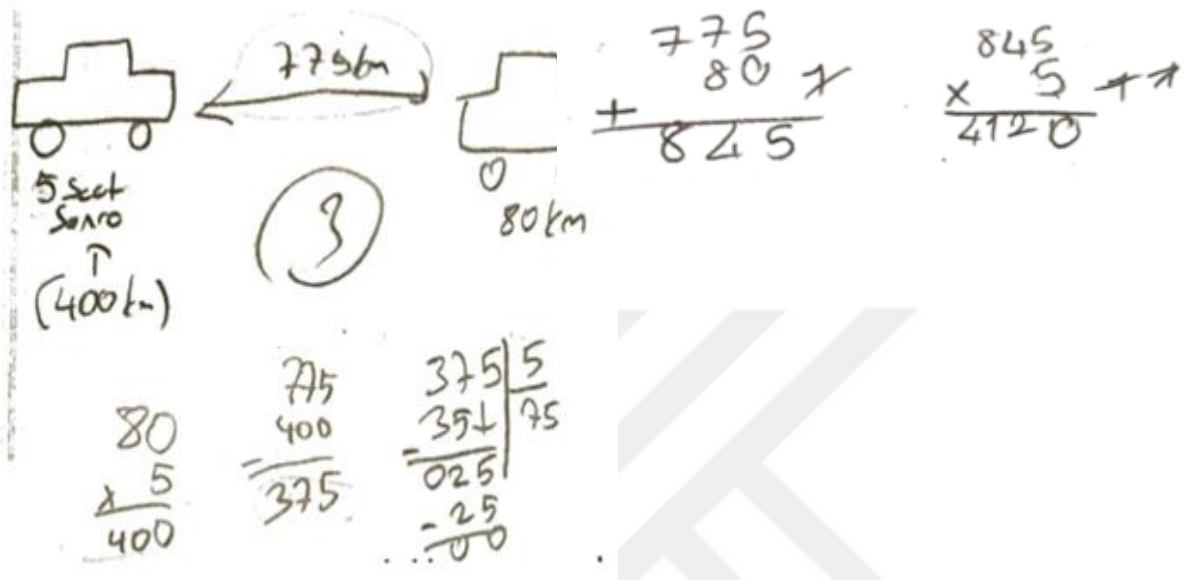 775km
5 saat
Sonra
↑
(400km)
3
80km
80
x 5
400
775
400
-
375
375 | 5
- 35↓ | 75
025
- 25
00
775
80
+
845
845
x 5
4120